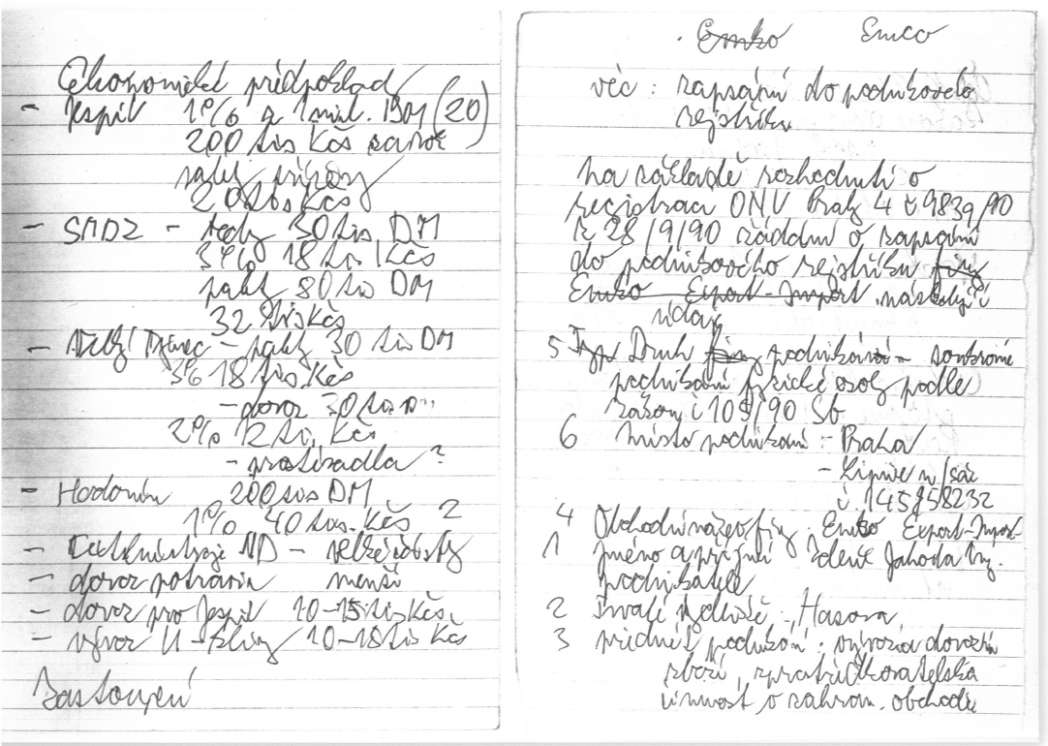 Ekonomické předpoklady
- Jespil 1% z 1 mil. DM (20)
200 tis Kčs
20 tis Kčs
- SMDZ - tedy 30 tis DM
3% 18 tis Kčs
80 tis DM
32 tis Kčs
- Velký Týnec - 30 tis DM
3% 18 tis. Kčs
- dovoz 30 tis DM
2% 12 tis. Kčs
- protizadla ?
- Hodonín 200 tis DM
1% 40 tis. Kčs ?
- ND -
- dovoz potravin menší
- dovoz pro Jespil 10-15 tis Kčs.
- vývoz 10-18 tis Kčs
Zastoupení
Emko Emco
věc : zapsání do podnikového
rejstříku
Na základě rozhodnutí o
registraci ONV Prahy 4 č 9839/90
z 28/9/90 žádám o zapsání
do podnikového rejstříku firmy
Emko Export-Import následující
údaje
5 Typ Druh firmy podnikání - soukromé
podnikání fyzické osoby podle
zákona č 105/90 Sb
6 místo podnikání - Praha
- Lipnice n/Sáz
č 1145958232
4 Obchodní název firmy Emko Export-Import
1 Jméno a příjmí Zdeněk Jahoda Ing.
podnikatele
2 Trvalé bydliště - Hasova
3 předmět podnikání : vývoz a dovoz
zboží, zprostředkovatelská
činnost v zahran. obchodu